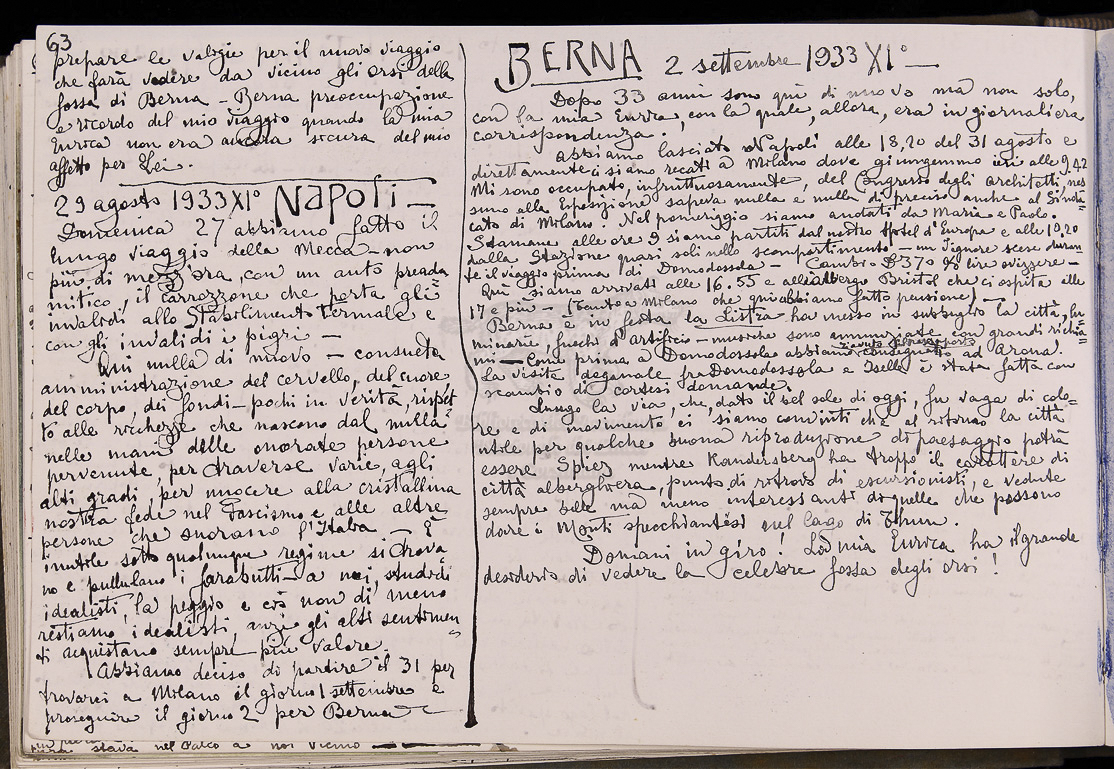 63
prepare le valigie per il nuovo viaggio
che farà vedere da vicino gli orsi della
fossa di Berna – Berna preoccupazione
e ricordo del mio viaggio quando la mia
Enrica non era ancora sicura del mio
affetto per Lei.
29 agosto 1933 XI° NAPOLI –
Domenica 27 abbiamo fatto il
lungo viaggio della Mecca – non
più di mezz'ora, con un auto preada
mitico, il carrozzone che porta gli
invalidi allo Stabilimento Termale e
con gli invalidi i pigri –
Qui nulla di nuovo – consueta
amministrazione del cervello, del cuore,
del corpo, dei fondi – pochi in verità, rispet
to alle ricchezze che nascono dal nulla
nelle mani delle onorate persone
pervenute, per traverse varie, agli
alti gradi, per nuocere alla cristallina
nostra fede nel Fascismo e alle altre
persone che onorano l'Italia – È
inutile sotto qualunque regime si trova
no e pullulano i farabutti – a noi, studiosi
idealisti, la peggio e ciò non di meno
restiamo idealisti, anzi gli alti sentimen
ti acquistano sempre più valore.
Abbiamo deciso di partire il 31 per
trovarci a Milano il giorno 1 settembre e
proseguire il giorno 2 per Berna –
BERNA 2 settembre 1933 XI° –
Dopo 33 anni sono qui di nuovo ma non solo,
con la mia Enrica, con la quale, allora, era in giornaliera
corrispondenza.
Abbiamo lasciato Napoli alle 18,20 del 31 agosto e
direttamente ci siamo recati a Milano dove giungemmo ieri alle 9.42
Mi sono occupato, infruttuosamente, del Congresso degli Architetti, nes
suno alla Esposizione sapeva nulla e nulla di preciso anche al Sinda=
cato di Milano. Nel pomeriggio siamo andati da Maria e Paolo.
Stamane, alle ore 9 siamo partiti dal nostro Hotel d'Europa e alle 10,20
dalla Stazione quasi soli nello scompartimento – un Signore scese duran
te il viaggio prima di Domodossola – Cambio 370 % lire svizzere –
Qui siamo arrivati alle 16.55 e all'albergo Bristol che ci ospita alle
17 e più – (Tanto a Milano che qui abbiamo fatto pensione) –
Berna è in festa la Listra ha messo in subbuglio la città, lu
minarie, fuochi d'artificio – musiche sono annunziate con grandi richia=
mi – Come prima a Domodossola abbiamo consegnato ad Arona.
La visita doganale fra Domodossola e Iselle è stata fatta con
scambio di cortesi domande.
Lungo la via, che, dato il bel sole di oggi, fu vaga di colo=
re e di movimento ci siamo convinti che al ritorno la città
utile per qualche buona riproduzione di paesaggio potrà
essere Spiez mentre Kandersberg ha troppo il carattere di
città alberghiera, punto di ritrovo di escursionisti, e vedute
sempre belle ma meno interessanti di quelle che possono
dare i Monti specchiantesi nel lago di Thun.
Domani in giro! La mia Enrica ha il grande
desiderio di vedere la celebre fossa degli orsi!
stava nel Palco a noi vicino